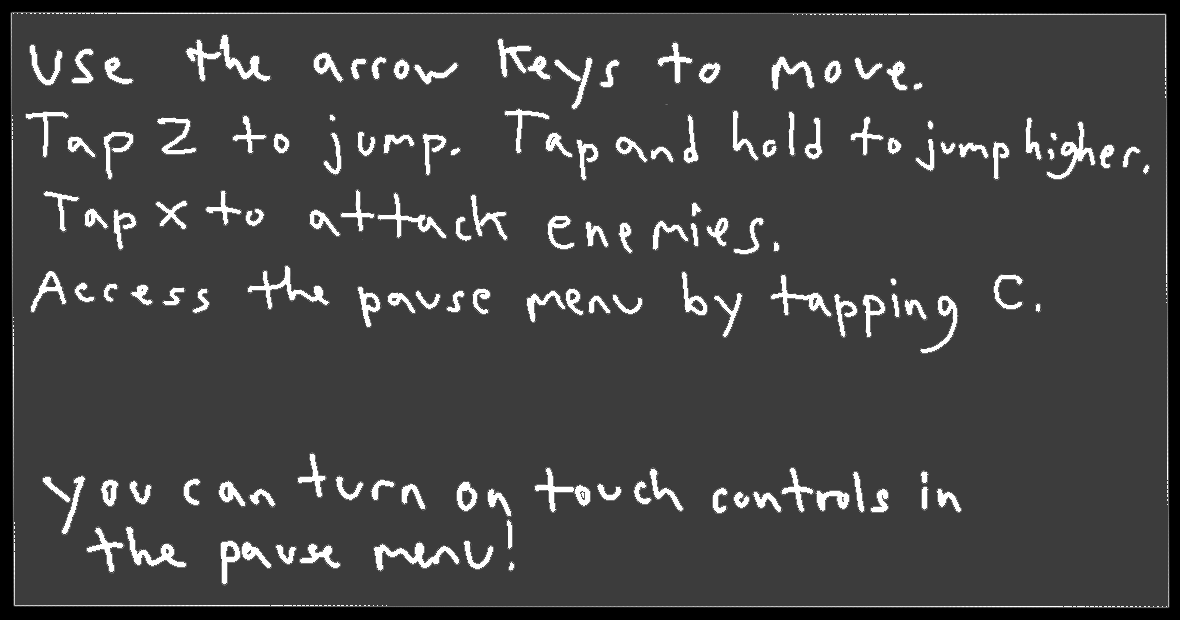 Use the arrow keys to move.
Tap Z to jump. Tap and hold to jump higher.
Tap X to attack enemies.
Access the pause menu by tapping C.
You can turn on touch controls in
the pause menu!